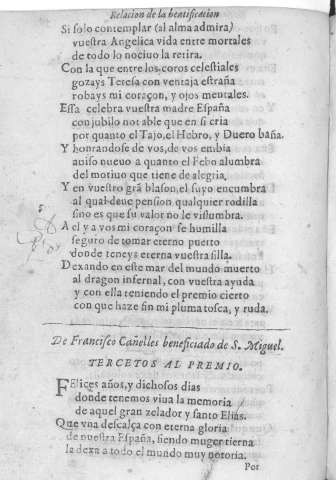 Relacion de la beatificacion
Si solo contemplar (al alma admira)
vuestra Angelica vida entre mortales
de todo lo nociuo la retira.
Con la que entre los coros celestiales
gozays Teresa con ventaja estraña
robays mi coraçon, y ojos mentales.
Essa celebra vuestra madre España
con jubilo notable que en si cria
por quanto el Tajo, el Hebro, y Duero baña.
Y honrandose de vos, de vos embia
auiso nueuo a quanto el Febo alumbra
del motiuo que tiene de alegria.
Y en vuestro grã blason, el suyo encumbra
al qual deue pension qualquier rodilla
sino es que su valor no le vislumbra.
A el y a vos mi coraçon se humilla
seguro de tomar eterno puerto
donde teneys eterna vuestra silla.
Dexando en este mar del mundo muerto
al dragon infernal, con vuestra ayuda
y con ella teniendo el premio cierto
con que haze fin mi pluma tosca, y ruda.
De Francisco Cañelles beneficiado de S. Miguel.
TERCETOS AL PREMIO.
FElices años, y dichosos dias
donde tenemos viua la memoria
de aquel gran zelador y santo Elias.
Que vna descalça con eterna gloria
de nuestra España, siendo muger tierna
la dexa a todo el mundo muy notoria.
Por